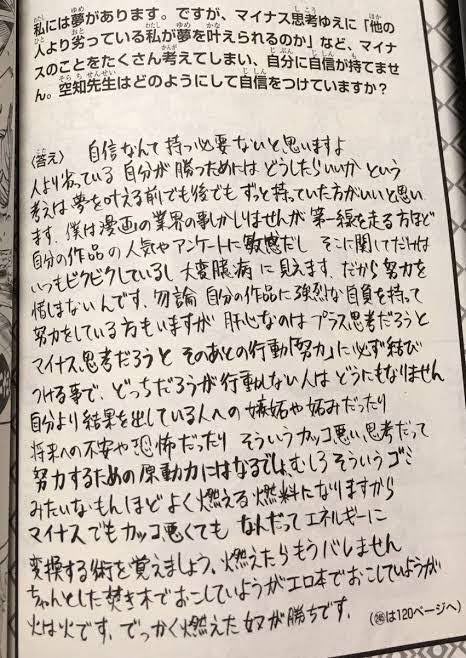 私には夢があります。ですが、マイナス思考ゆえに「他の
人より劣っている私が夢を叶えられるのか」など、マイナ
スのことをたくさん考えてしまい、自分に自信が持てませ
ん。空知先生はどのようにして自信をつけていますか?
<答え> 自信なんて持つ必要ないと思いますよ
人より劣っている自分が勝つためにはどうしたらいいかという
考えは夢を叶える前でも後でもずっと持っていた方がいいと思い
ます。僕は漫画の業界の事しかしりませんが第一線を走る方ほど
自分の作品の人気やアンケートに敏感だし そこに関してだけは
いつもビクビクしているし 大変臆病に見えます。だから努力を
惜しまないんです。勿論 自分の作品に強烈な自負を持って
努力をしている方もいますが 肝心なのはプラス思考だろうと
マイナス思考だろうと そのあとの行動「努力」に必ず結び
つける事で、どっちだろうが行動しない人はどうにもなりません
自分より結果を出している人への嫉妬や妬みだったり
将来への不安や恐怖だったり そういうカッコ悪い思考だって
努力するための原動力にはなるでしょ むしろそういうゴミ
みたいなもんほどよく燃える燃料になりますから
マイナスでもカッコ悪くても なんだってエネルギーに
変換する術を覚えましょう、燃えたらもうバレません
ちゃんとした焚き木でおこしていようがエロ本でおこしていようが
火は火です。でっかく燃えた奴が勝ちです。
(は120ページへ)